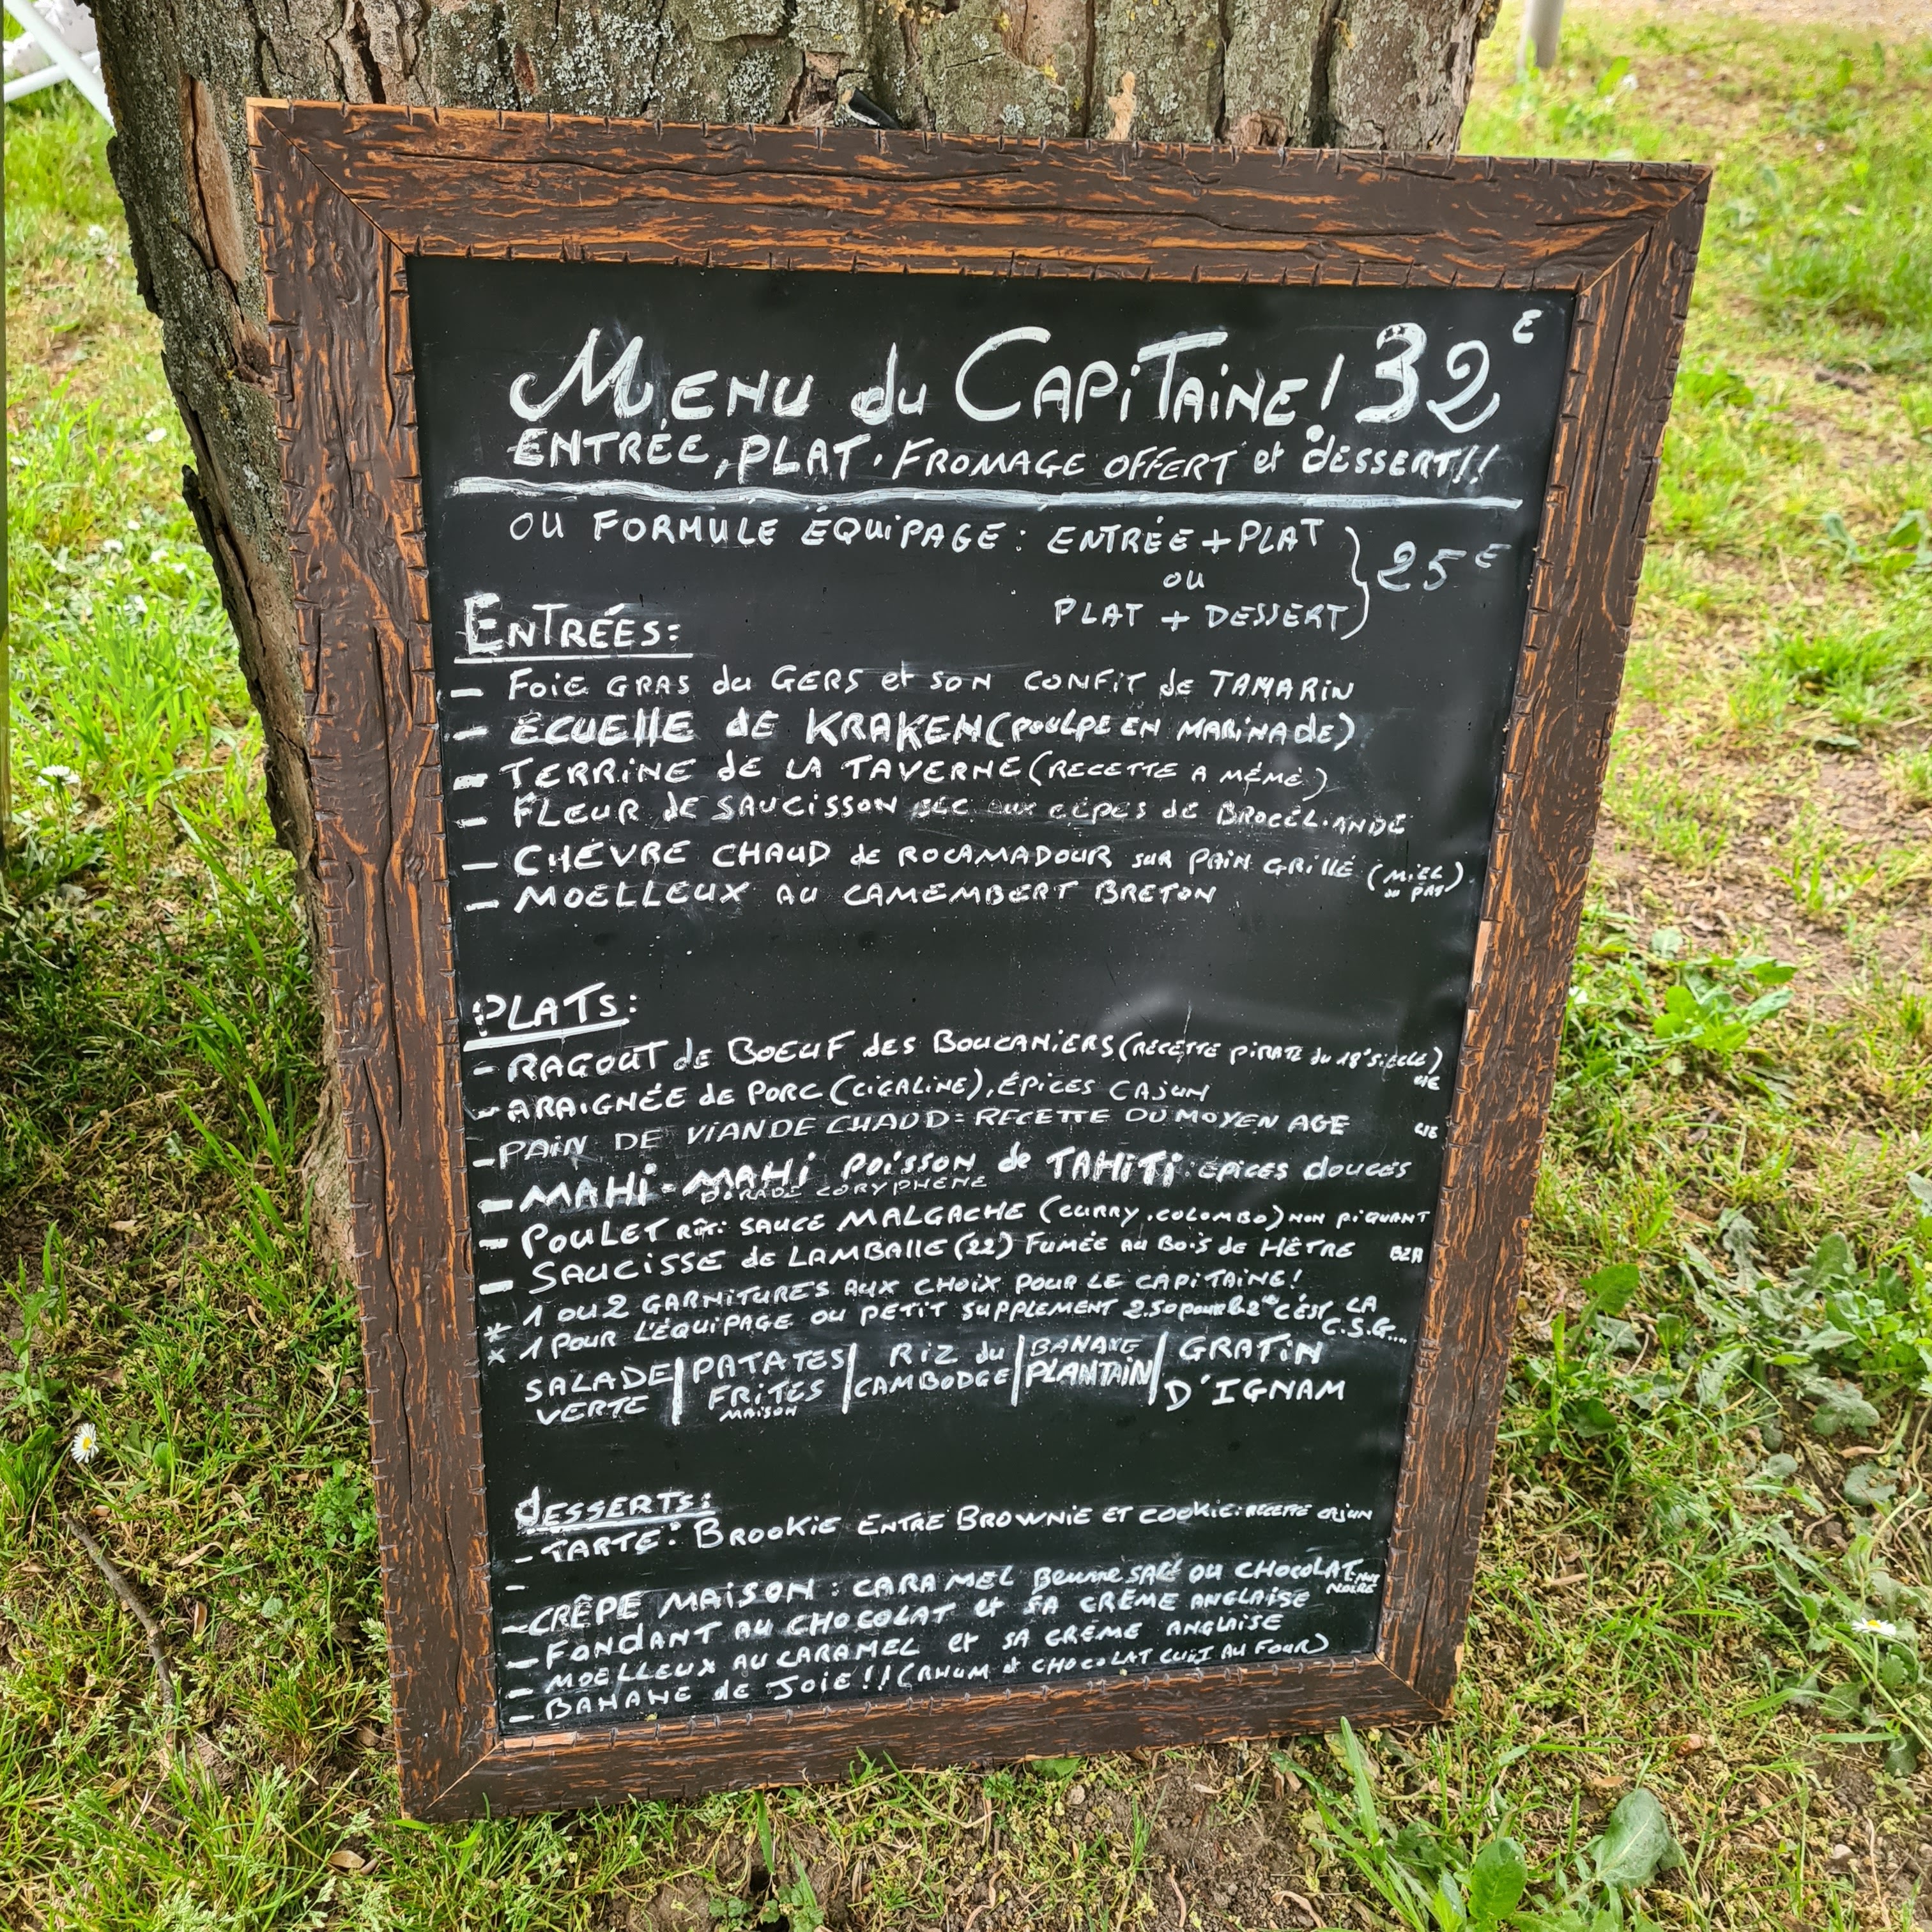 MENU du CAPiTAiNE! 32 €
ENTRÉE, PLAT, FROMAGE OFFERT et dESSERT!!
OU FORMULE ÉQUiPAGE : ENTRÉE + PLAT
OU
PLAT + DESSERT
25 €
ENTRÉES:
- FOiE GRAS du GERS et SON CONFiT de TAMARiN
- ÉCUELLE dE KRAKEN (POULPE EN MARiNAdE)
- TERRiNE dE LA TAVERNE (RECETTE A MÉMÉ)
- FLEUR de SAUCISSON SEC aux CÈPES de BROCÉLiANDE
- CHÈVRE CHAUD de ROCAMADOUR SUR PAiN GRiLLÉ (MiEL ou PAS)
- MOELLEUX AU CAMEMBERT BRETON
PLATS:
- RAGOUT de BOEUF des BOUCANiERS (RECETTE PiRATE du 18e SiECLE)
- ARAiGNÉE de PORC (CiGALiNE), ÉPiCES CAJUN
- PAiN DE ViANDE CHAUD = RECETTE DU MOYEN AGE
- MAHi-MAHi POiSSON de TAHiTi: ÉPiCES douCES
DORADE CORYPHÈNE
- POULET RÔTi: SAUCE MALGACHE (CURRY, COLOMBO) NON PiQUANT
- SAUCISSE de LAMBALLE (22) FUMÉE AU BOiS de HÊTRE BZH
* 1 OU 2 GARNiTURES AUX CHOiX POUR LE CAPiTAiNE!
* 1 POUR L'ÉQUIPAGE OU PETiT SUPPLEMENT 2.50 pour la 2e C'EST LA C.S.G....
SALADE VERTE | PATATES FRiTES MAiSON | RiZ du CAMBODGE | BANANE PLANTAiN | GRATiN D'IGNAM
dESSERTS:
- TARTE: BROOKiE ENTRE BROWNiE ET COOKiE: RECETTE CAJUN
-
- CRÊPE MAiSON : CARAMEL BEURRE SALÉ OU CHOCOLAT NOIRE
- FONDANT AU CHOCOLAT et SA CRÈME ANGLAiSE
- MOELLEUX AU CARAMEL et SA CRÈME ANGLAiSE
- BANANE de JOiE!! (RHUM & CHOCOLAT CUiT AU FOUR)